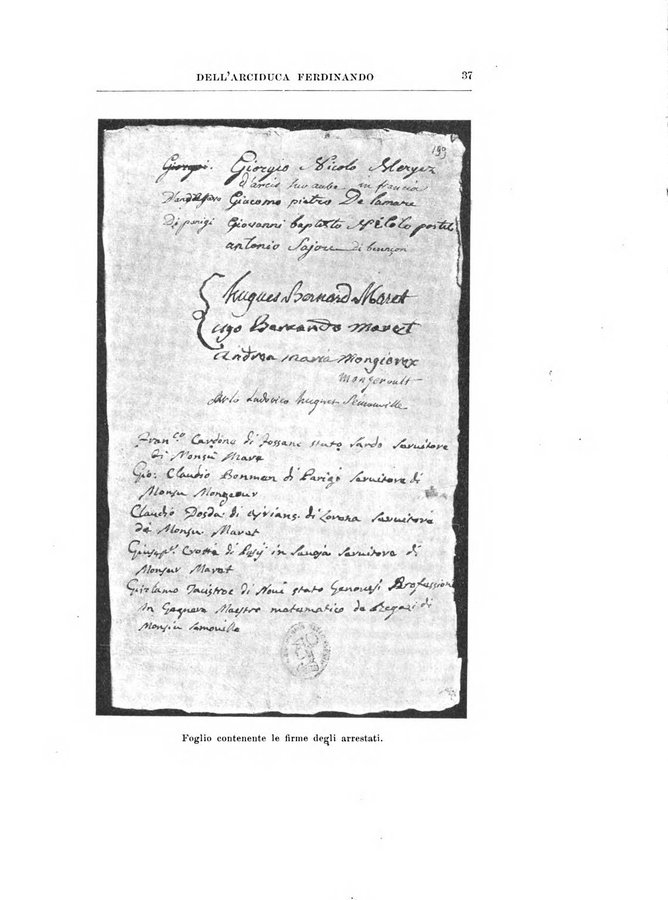 DELL'ARCIDUCA FERDINANDO 37
199
Giorgio Nicolo Mergez
d'arcis sur aube in francia
Giacomo pietro De lamare
Di parigi Giovanni baptisto
antonio Sajou di
Hugues Bernard Maret
ugo Bernando maret
Andrea maria Mongiorox
mongeroult
Carlo Ludovico huguet Semonville
Fran.co Cardone di fossane stato sardo Servitore
di Monsù Mara
Gio: Claudio Bonman di Parigi Servitore di
Monsu Mongeour
Claudio Dosda di di Lorena Servitore
de Monsu Maret
Giusep.e Crotta di in Savoja Servitore di
Monsur Maret
Girolamo di Novi stato Genovesi Professione
in Maestro matematico de Regazi di
Monsiu Samovilla
Foglio contenente le firme degli arrestati.